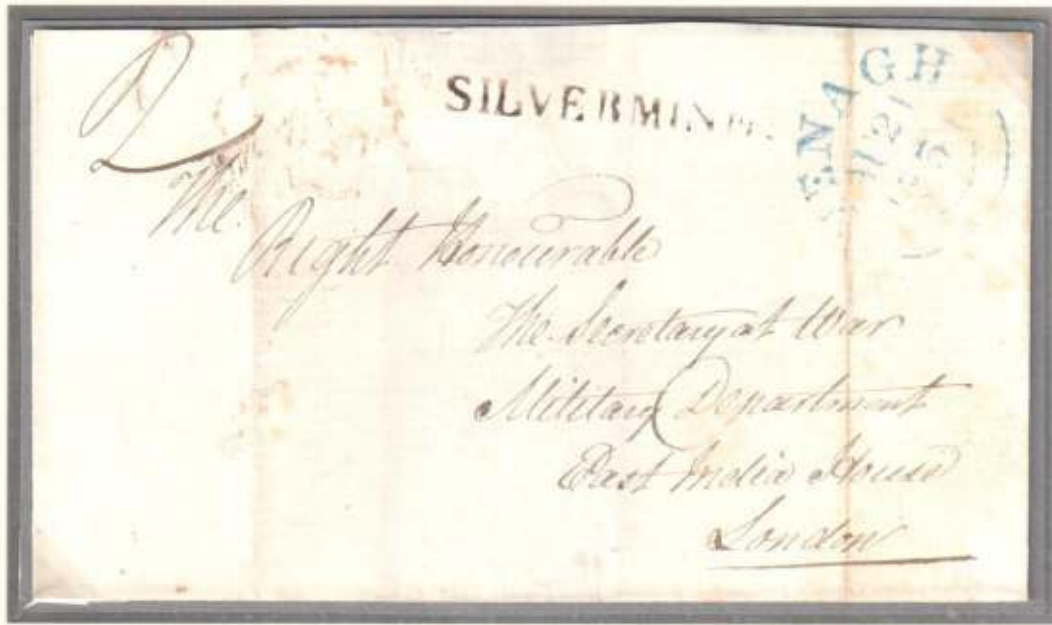 2
SILVERMIN
ENAGH
The
Right Honourable
The Secretary at War
Military Department
East India House
London